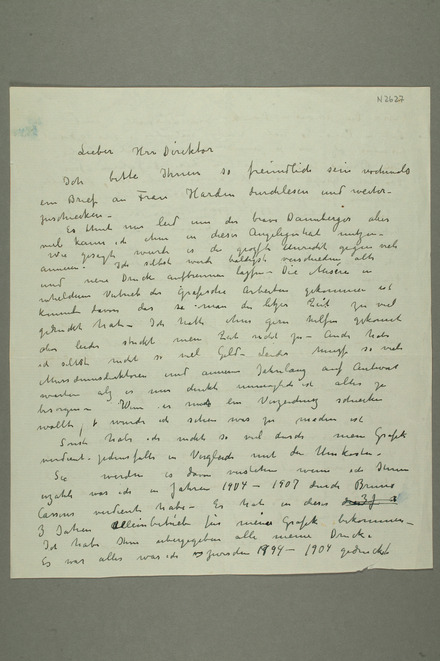 N2627
Lieber Herr Direktor
Ich bitte Ihnen so freundlich sein nochmals
ein Brief an Frau Harden durchlesen und weiter-
zuschicken.
Es thut uns leid um des brave Dannberger aber
viel kann ich ihm in dieser Angelegenheit nutzen.
Wie gesagt wurde is die größte Unrecht gegen mich
Ich selbst werde baldigst verschiedene alte
und neue Drucke aufbrennen lassen - Die Misere in
welchem Vertrieb der Grafische Arbeiten gekommen ist
kommt davon das man die letzte Zeit zu viel
gedruckt hat - Ich hatte ihm gern helfen gekonnt
aber leider steckt mein Zeit nicht zu - Auch habe
ich selbst nicht so viel Geld - Leider muss so viele
Museumsdirektoren und Jahrelang auf Antwort
warten als es mir denkt unmöglich ist alles zu
besorgen - Wenn er mich ein Verzeichnis schicken
wollte, würde ich schon was zu machen ist
Sonst habe ich nicht so viel durch mein Grafik
verdient - jedenfalls in Vergleich mit der Unkosten -
Sie werden es dann verstehen wenn ich Ihnen
erzähle was ich in Jahren 1904 - 1907 durch Bruno
Cassirer verdient habe - Er hat in diese
3 Jahren alleinbetrieb für meine Grafik bekommen -
Ich habe Ihm übergegeben alle meine Drucke
Es war alles was ich zwischen 1894 - 1904 gedruckt